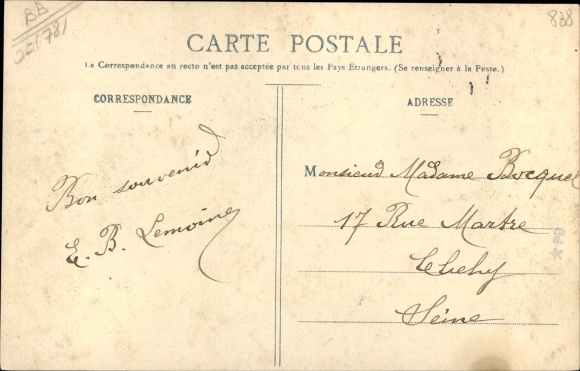 BB
838
CARTE POSTALE
La Correspondance au recto n'est pas acceptée par tous les Pays Étrangers. (Se renseigner à la Poste.)
CORRESPONDANCE
Bon souvenir
E. B. Lemoine
ADRESSE
Monsieur Madame Bocquel
17 Rue Martre
Clichy
Seine